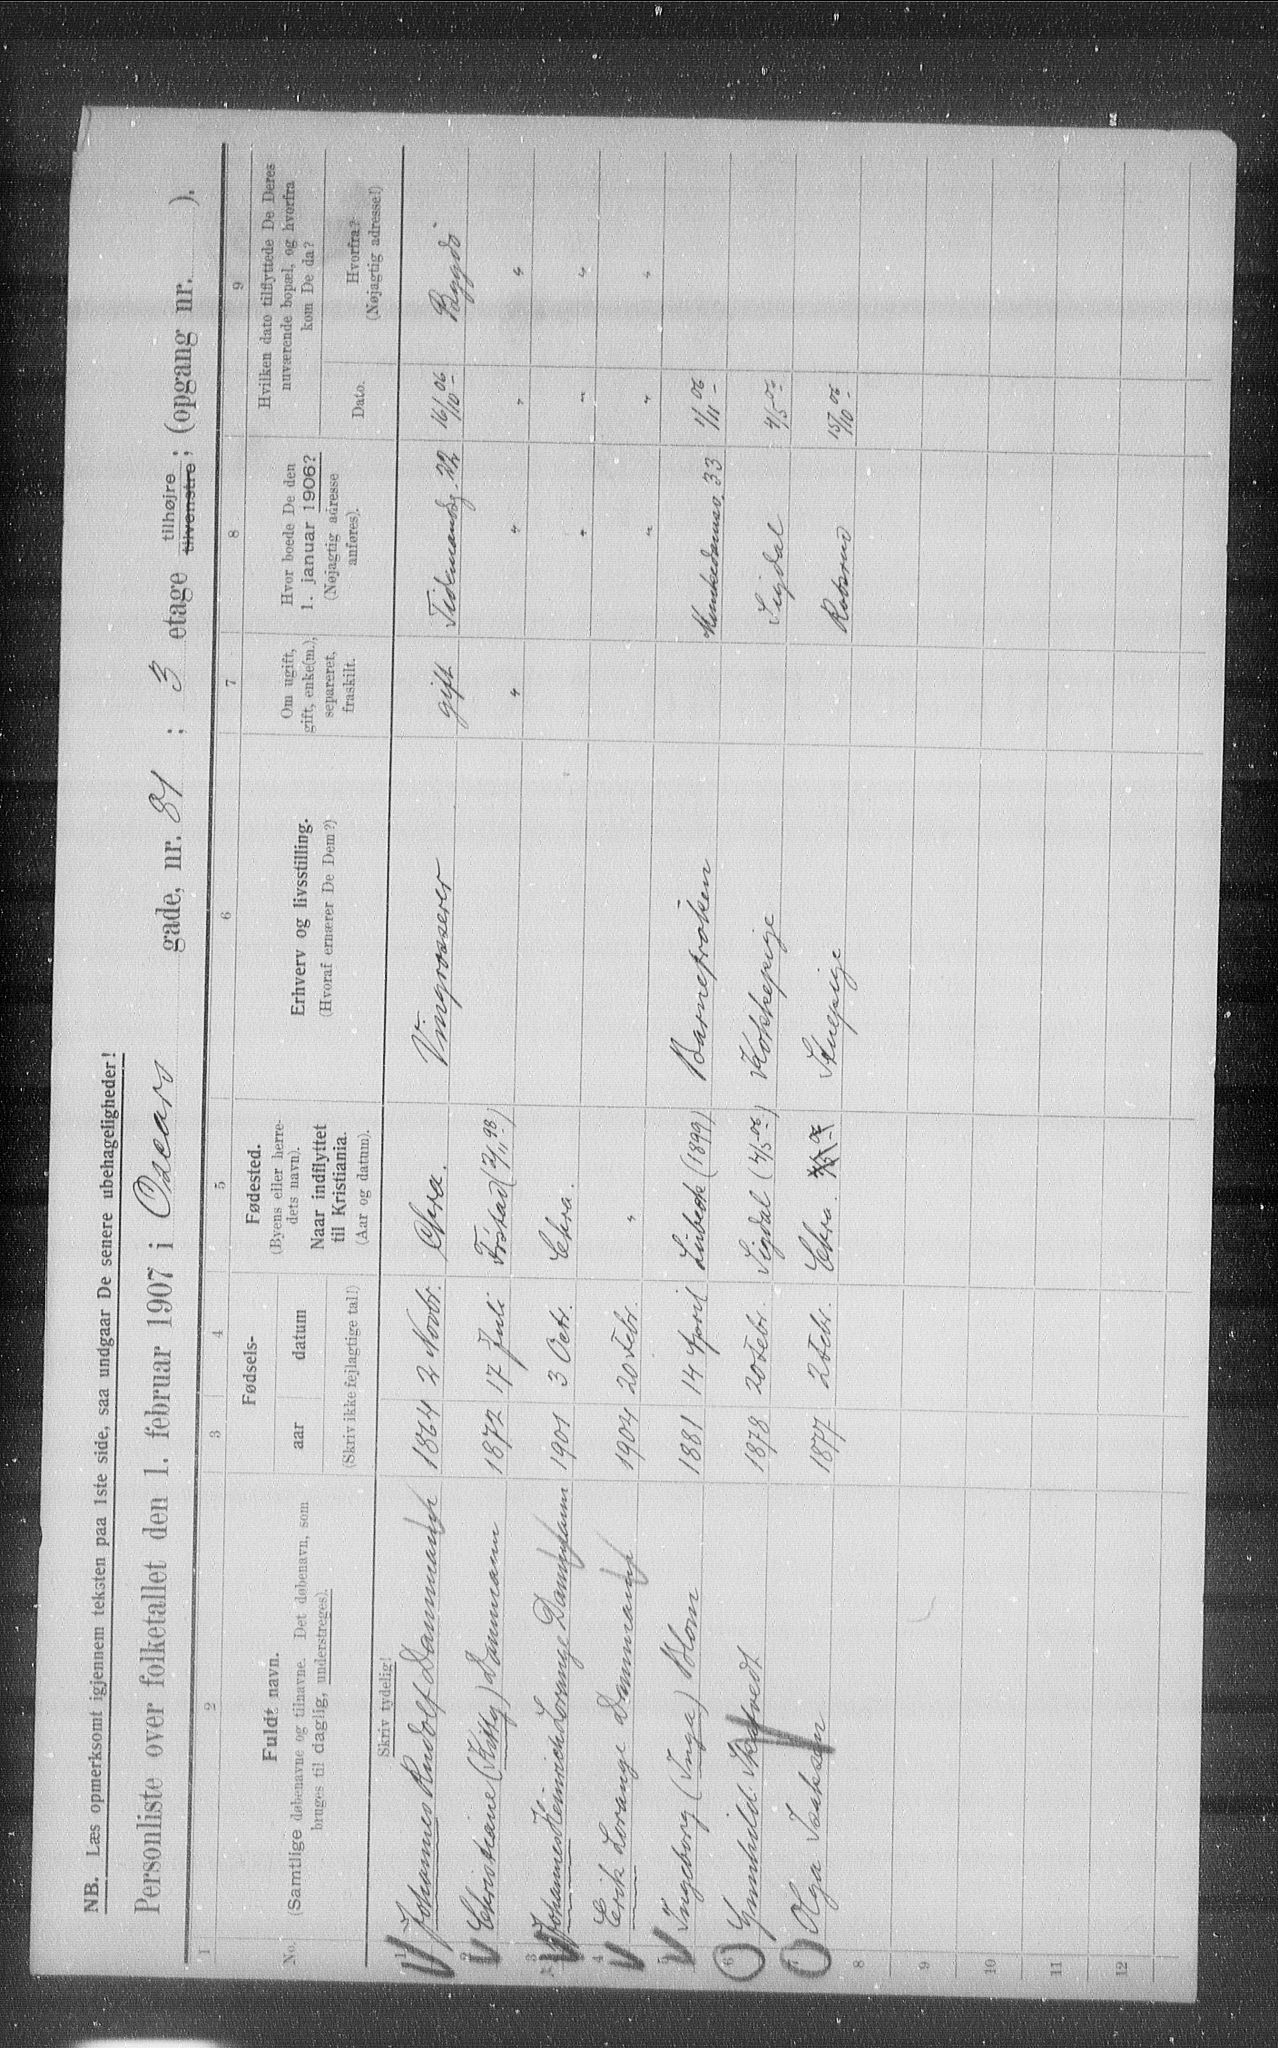 NB. Læs opmerksomt igjennem teksten paa 1ste side, saa undgaar De senere ubehageligheder!
Personliste over folketallet den 1. februar 1907 i Oscars gade, nr. 81 ; 3 etage tilhøjre tilvenstre; (opgang nr. ).
1 2 3 4 5 6 7 8 9
No.
Fuldt navn.
(Samtlige døbenavne og tilnavne. Det døbenavn, som
bruges til daglig, understreges).
Skriv tydelig!
Fødsels-
aar datum
(Skriv ikke fejlagtige tal!)
Fødested.
(Byens eller herre-
dets navn).
Naar indflyttet
til Kristiania.
(Aar og datum).
Erhverv og livsstilling.
(Hvoraf ernærer De Dem?)
Om ugift,
gift, enke(m.),
separeret,
fraskilt.
Hvor boede De den
1. januar 1906?
(Nøjagtig adresse
anføres).
Hvilken dato tilflyttede De Deres
nuværende bopæl, og hvorfra
kom De da?
Dato.
Hvorfra?
(Nøjagtig adresse!)
1 Johannes Rudolf Dannmann 1864 2 Novbr. Chra. Vingrosserer gift Tidemandsg. 22 16/10 06 Bygdö
2 Christiane (Kitty) Dannmann 1872 17 Juli (2/11 98) " " " "
3 Johannes Heinrich Lorange Dannmann 1901 3 Octr. Chra. " " "
4 Erik Lorange Dannmann 1904 20 Febr. " " " "
5 Ingeborg (Inga) Blom 1881 14 April Lübeck (1899) Barnefrøken Munkedamsv. 33 1/11 06
6 Gunhild 1878 20 Febr. Sigdal (4/5 06) Kokkepige Sigdal 4/5 06
7 Olga Isaksen 1877 2 Febr. Chra. Stuepige 15/10 06
8
9
10
11
12